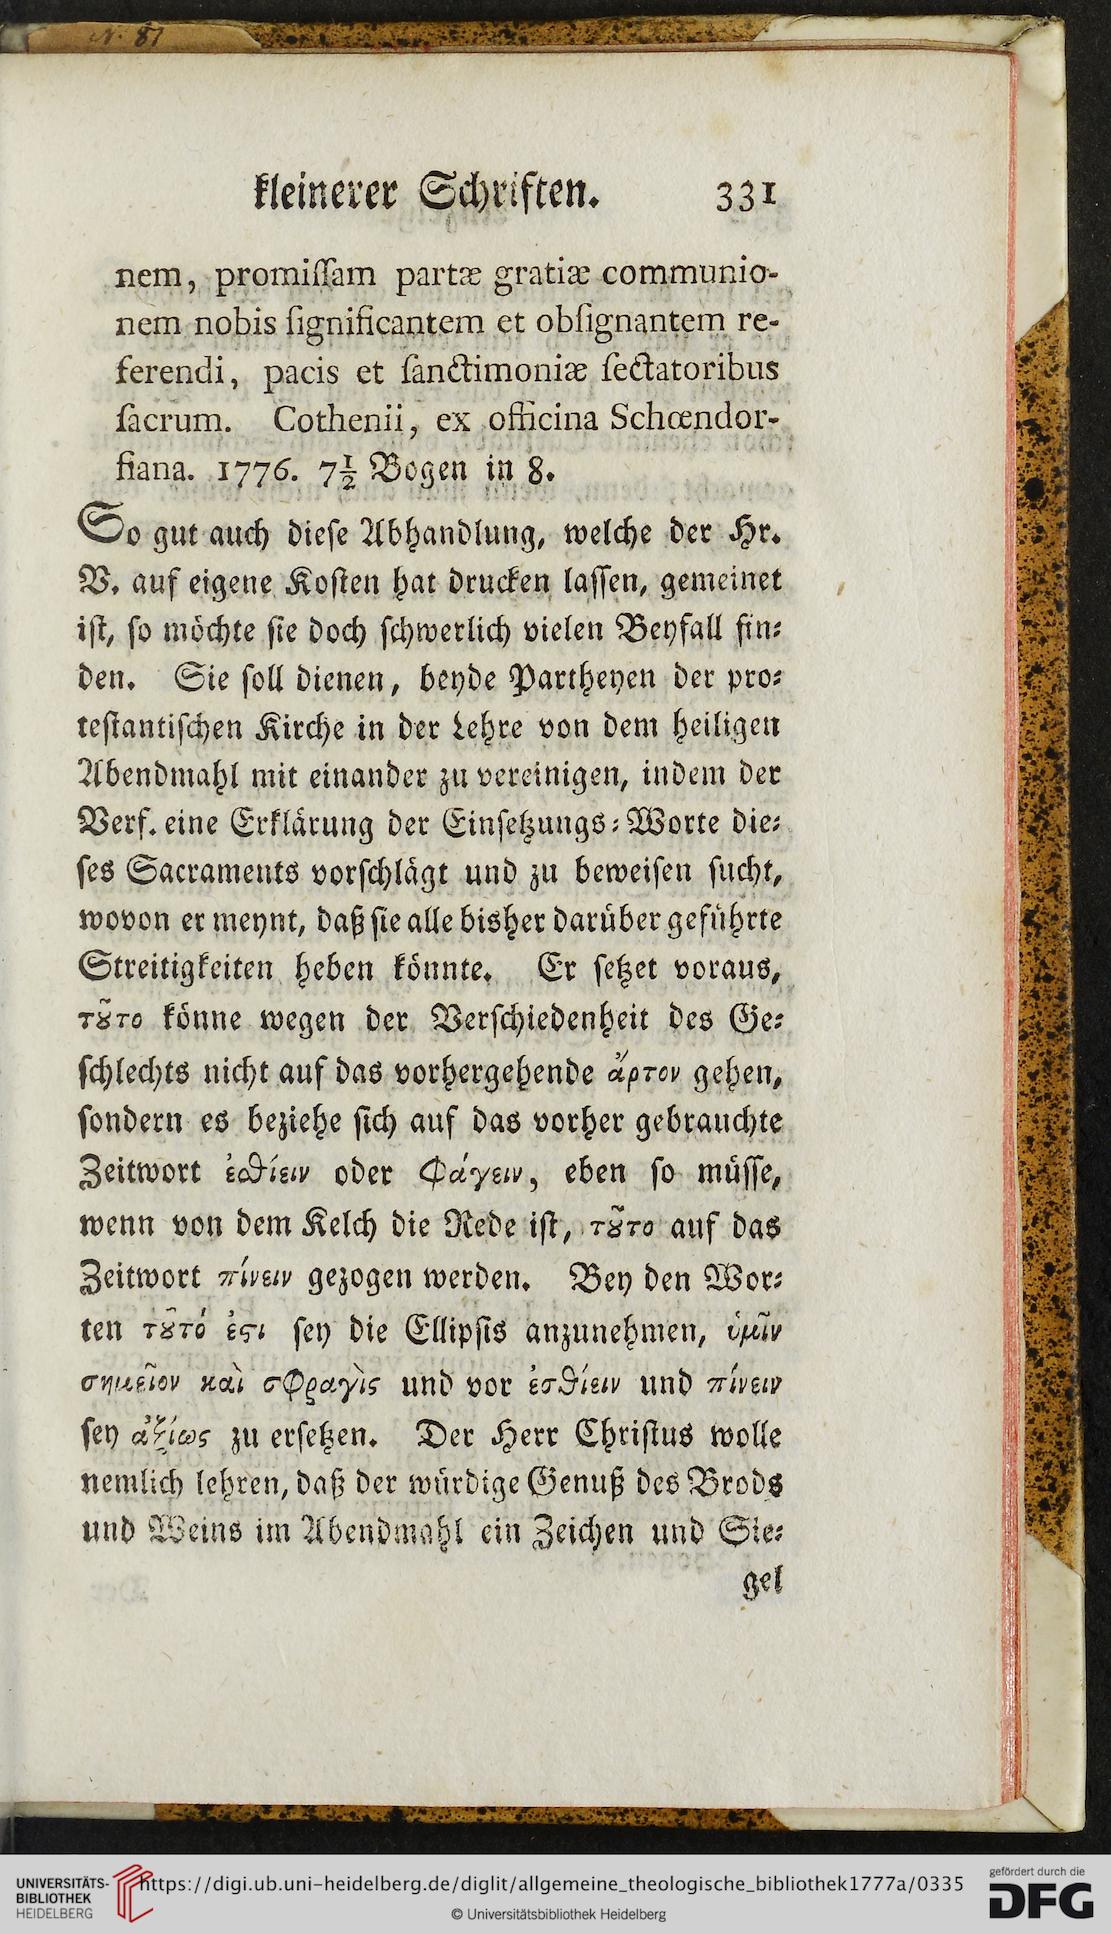 N. 81
kleinerer Schriften. 331
nem, promiſſam partæ gratiæ communio-
nem nobis ſignificantem et obſignantem re-
ferendi, pacis et ſanctimoniæ ſectatoribus
ſacrum. Cothenii, ex officina Schœndor-
fiana. 1776. 7½ Bogen in 8.
So gut auch dieſe Abhandlung, welche der Hr.
V. auf eigene Koſten hat drucken laſſen, gemeinet
iſt, ſo möchte ſie doch ſchwerlich vielen Beyfall fin⸗
den. Sie ſoll dienen, beyde Partheyen der pro⸗
teſtantiſchen Kirche in der Lehre von dem heiligen
Abendmahl mit einander zu vereinigen, indem der
Verf. eine Erklärung der Einſetzungs⸗Worte die⸗
ſes Sacraments vorſchlägt und zu beweiſen ſucht,
wovon er meynt, daß ſie alle bisher darüber geführte
Streitigkeiten heben könnte. Er ſetzet voraus,
τȣ͂το könne wegen der Verſchiedenheit des Ge⸗
ſchlechts nicht auf das vorhergehende ἄρτον gehen,
ſondern es beziehe ſich auf das vorher gebrauchte
Zeitwort ἐσθίειν oder φάγειν, eben ſo müſſe,
wenn von dem Kelch die Rede iſt, τȣ͂το auf das
Zeitwort πίνειν gezogen werden. Bey den Wor⸗
ten τȣ͂τό ἐϛι ſey die Ellipſis anzunehmen, ὑμῖν
σημεῖον καὶ σφραγὶς und vor ἐσθίειν und πίνειν
ſey ἀξίως zu erſetzen. Der Herr Chriſtus wolle
nemlich lehren, daß der würdige Genuß des Brods
und Weins im Abendmahl ein Zeichen und Sie⸗
gel
UNIVERSITÄTS-
BIBLIOTHEK
HEIDELBERG
https://digi.ub.uni-heidelberg.de/diglit/allgemeine_theologische_bibliothek1777a/0335
© Universitätsbibliothek Heidelberg
gefördert durch die
DFG